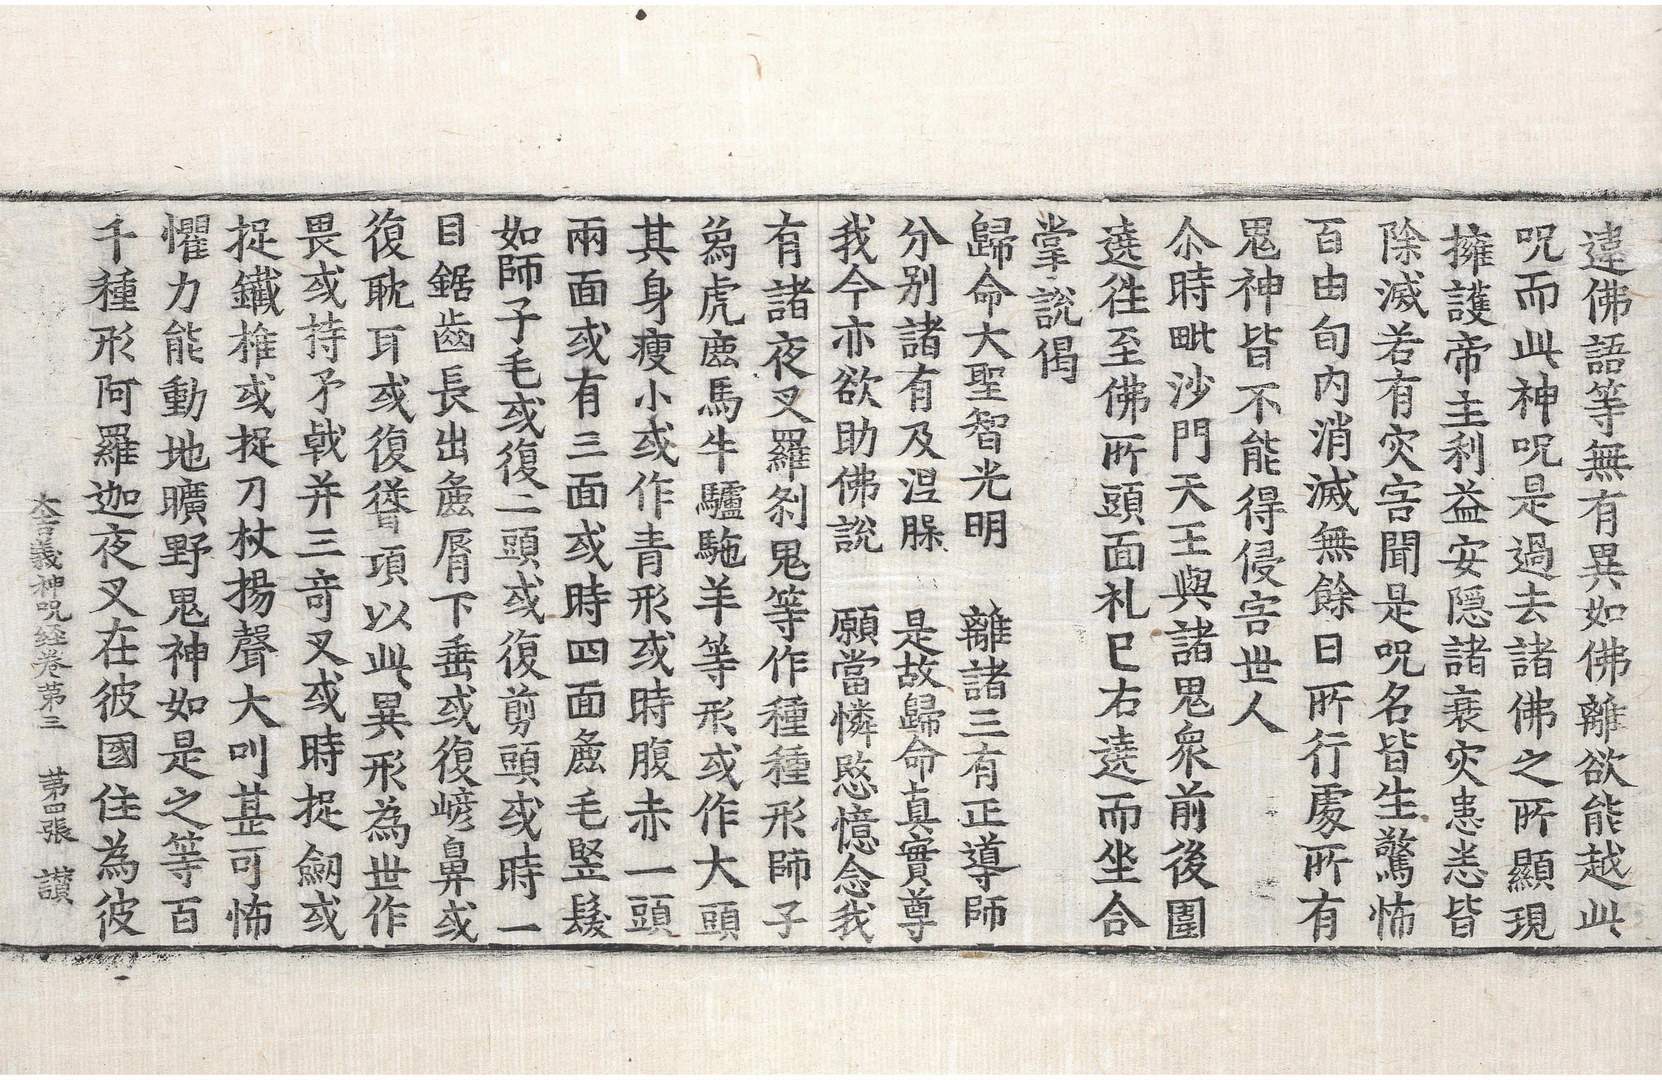 違佛語等無有異如佛離欲能越此
呪而此神呪是過去諸佛之所顯現
擁護帝主利益安隱諸衰灾患恙皆
除滅若有灾害聞是呪名皆生驚怖
百由旬內消滅無餘日所行處所有
鬼神皆不能得侵害世人
尒時毗沙門天王與諸鬼衆前後圍
遶往至佛所頭面礼已右遶而坐合
掌說偈
歸命大聖智光明　離諸三有正導師
分別諸有及涅𦚾　是故歸命真實尊
我今亦欲助佛說　願當憐愍憶念我
有諸夜叉羅剎鬼等作種種形師子
象虎鹿馬牛驢駞羊等形或作大頭
其身瘦小或作青形或時腹赤一頭
兩面或有三面或時四面麁毛竪髮
如師子毛或復二頭或復剪頭或時一
目鋸齒長出麁脣下垂或復嵴鼻或
復耽耳或復聳項以此異形為世作
畏或持矛戟并三奇叉或時捉劒或
捉鐵椎或捉刀杖揚聲大叫甚可怖
懼力能動地曠野鬼神如是之等百
千種形阿羅迦夜叉在彼國住為彼
大吉義神呪经卷第三　第四張　讃